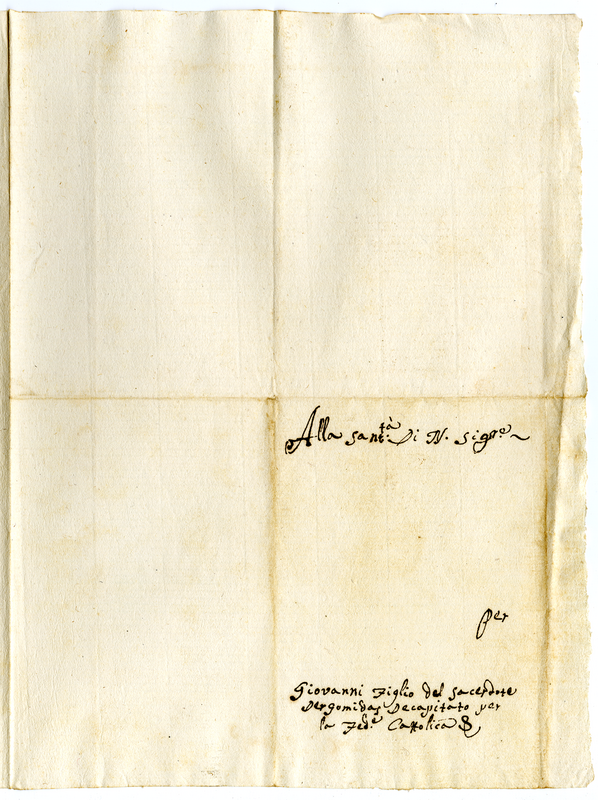 Alla Sant:tà Di N. Sig:re
per
Giovanni Figlio del sacerdote
Dergomidas Decapitato per
la Fede Cattolica &